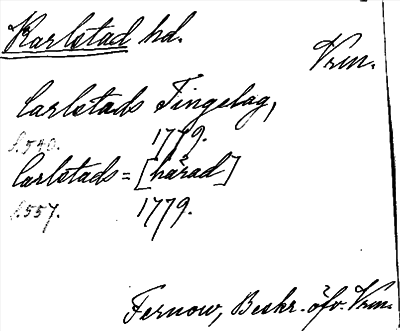 Karlstad hd.
Vrm.
Carlstads Tingelag,
s. 540. 1779.
Carlstads = [härad]
s. 557. 1779.
Fernow, Beskr. öfv. Vrm.